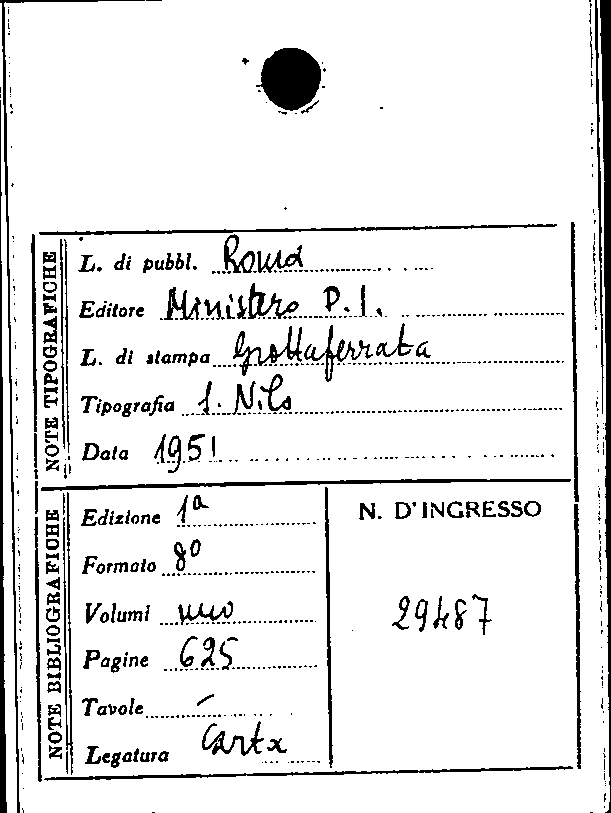 NOTE TIPOGRAFICHE
L. di pubbl. Roma
Editore Ministero P.I.
L. di stampa Grottaferrata
Tipografia S. Nilo
Data 1951
NOTE BIBLIOGRAFICHE
Edizione 1ª
Formato 8º
Volumi uno
Pagine 625
Tavole –
Legatura Carta
N. D'INGRESSO
29487